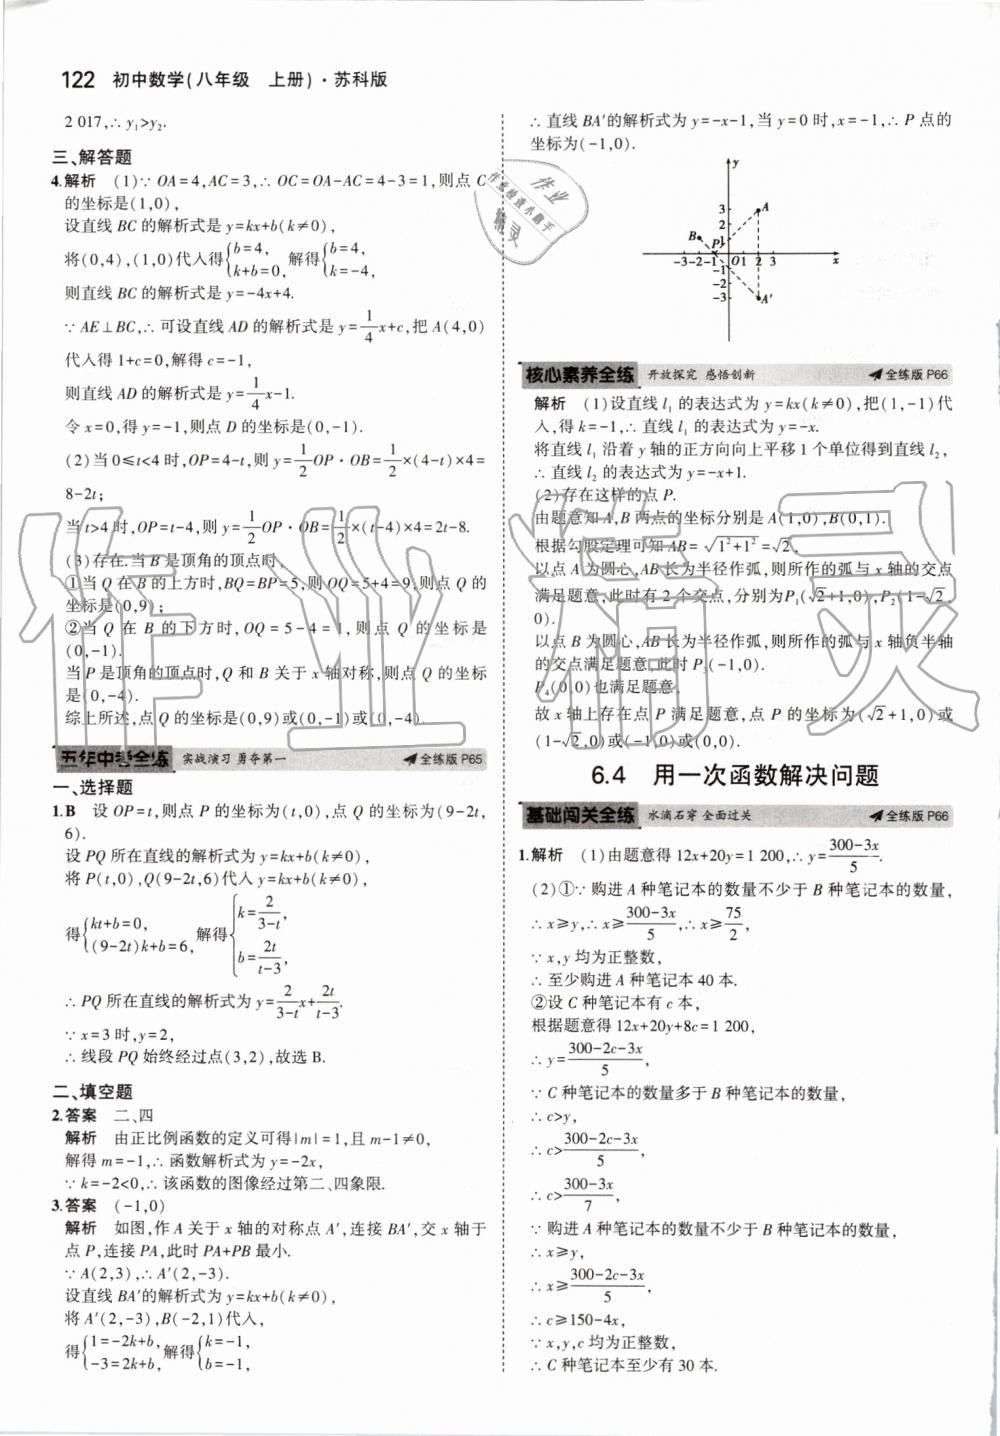 122 初中数学(八年级 上册)·苏科版
2 017,∴y₁>y₂.
三、解答题
4.解析 (1)∵OA=4,AC=3,∴OC=OA-AC=4-3=1,则点C
的坐标是(1,0),
设直线BC的解析式是y=kx+b(k≠0),
将(0,4),(1,0)代入得{b=4, k+b=0, 解得{b=4, k=-4,
则直线BC的解析式是y=-4x+4.
∵AE⊥BC,∴可设直线AD的解析式是y=1/4x+c,把A(4,0)
代入得1+c=0,解得c=-1,
则直线AD的解析式是y=1/4x-1.
令x=0,得y=-1,则点D的坐标是(0,-1).
(2)当0≤t<4时,OP=4-t,则y=1/2OP·OB=1/2×(4-t)×4=
8-2t;
当t>4时,OP=t-4,则y=1/2OP·OB=1/2×(t-4)×4=2t-8.
(3)存在.当B是顶角的顶点时,
①当Q在B的上方时,BQ=BP=5,则OQ=5+4=9,则点Q的
坐标是(0,9);
②当Q在B的下方时,OQ=5-4=1,则点Q的坐标是
(0,-1).
当P是顶角的顶点时,Q和B关于x轴对称,则点Q的坐标
是(0,-4).
综上所述,点Q的坐标是(0,9)或(0,-1)或(0,-4).
五年中考全练 实战演习 勇夺第一 全练版P65
一、选择题
1.B 设OP=t,则点P的坐标为(t,0),点Q的坐标为(9-2t,
6).
设PQ所在直线的解析式为y=kx+b(k≠0),
将P(t,0),Q(9-2t,6)代入y=kx+b(k≠0),
得{kt+b=0, (9-2t)k+b=6, 解得{k=2/(3-t), b=2t/(t-3),
∴PQ所在直线的解析式为y=2/(3-t)x+2t/(t-3).
∵x=3时,y=2,
∴线段PQ始终经过点(3,2),故选B.
二、填空题
2.答案 二、四
解析 由正比例函数的定义可得|m|=1,且m-1≠0,
解得m=-1,∴函数解析式为y=-2x,
∵k=-2<0,∴该函数的图像经过第二、四象限.
3.答案 (-1,0)
解析 如图,作A关于x轴的对称点A′,连接BA′,交x轴于
点P,连接PA,此时PA+PB最小.
∵A(2,3),∴A′(2,-3).
设直线BA′的解析式为y=kx+b(k≠0),
将A′(2,-3),B(-2,1)代入,
得{1=-2k+b, -3=2k+b, 解得{k=-1, b=-1,
∴直线BA′的解析式为y=-x-1,当y=0时,x=-1,∴P点的
坐标为(-1,0).
y
3 A
2
B 1
P
-3-2-1 O 1 2 3 x
-1
-2
-3 A′
核心素养全练 开放探究 感悟创新 全练版P66
解析 (1)设直线l₁的表达式为y=kx(k≠0),把(1,-1)代
入,得k=-1,∴直线l₁的表达式为y=-x.
将直线l₁沿着y轴的正方向向上平移1个单位得到直线l₂,
∴直线l₂的表达式为y=-x+1.
(2)存在这样的点P.
由题意知A,B两点的坐标分别是A(1,0),B(0,1).
根据勾股定理可知AB=√(1²+1²)=√2.
以点A为圆心,AB长为半径作弧,则所作的弧与x轴的交点
满足题意,此时有2个交点,分别为P₁(√2+1,0),P₂(1-√2,
0).
以点B为圆心,AB长为半径作弧,则所作的弧与x轴负半轴
的交点满足题意,此时P₃(-1,0).
P₄(0,0)也满足题意.
故x轴上存在点P满足题意,点P的坐标为(√2+1,0)或
(1-√2,0)或(-1,0)或(0,0).
6.4 用一次函数解决问题
基础闯关全练 水滴石穿 全面过关 全练版P66
1.解析 (1)由题意得12x+20y=1 200,∴y=(300-3x)/5.
(2)①∵购进A种笔记本的数量不少于B种笔记本的数量,
∴x≥y,∴x≥(300-3x)/5,∴x≥75/2,
∵x,y均为正整数,
∴至少购进A种笔记本40本.
②设C种笔记本有c本,
根据题意得12x+20y+8c=1 200,
∴y=(300-2c-3x)/5,
∵C种笔记本的数量多于B种笔记本的数量,
∴c>y,
∴c>(300-2c-3x)/5,
∴c>(300-3x)/7,
∵购进A种笔记本的数量不少于B种笔记本的数量,
∴x≥y,
∴x≥(300-2c-3x)/5,
∴c≥150-4x,
∵x,y,c均为正整数,
∴C种笔记本至少有30本.
作业精灵
作业
作业检查小助手
精灵